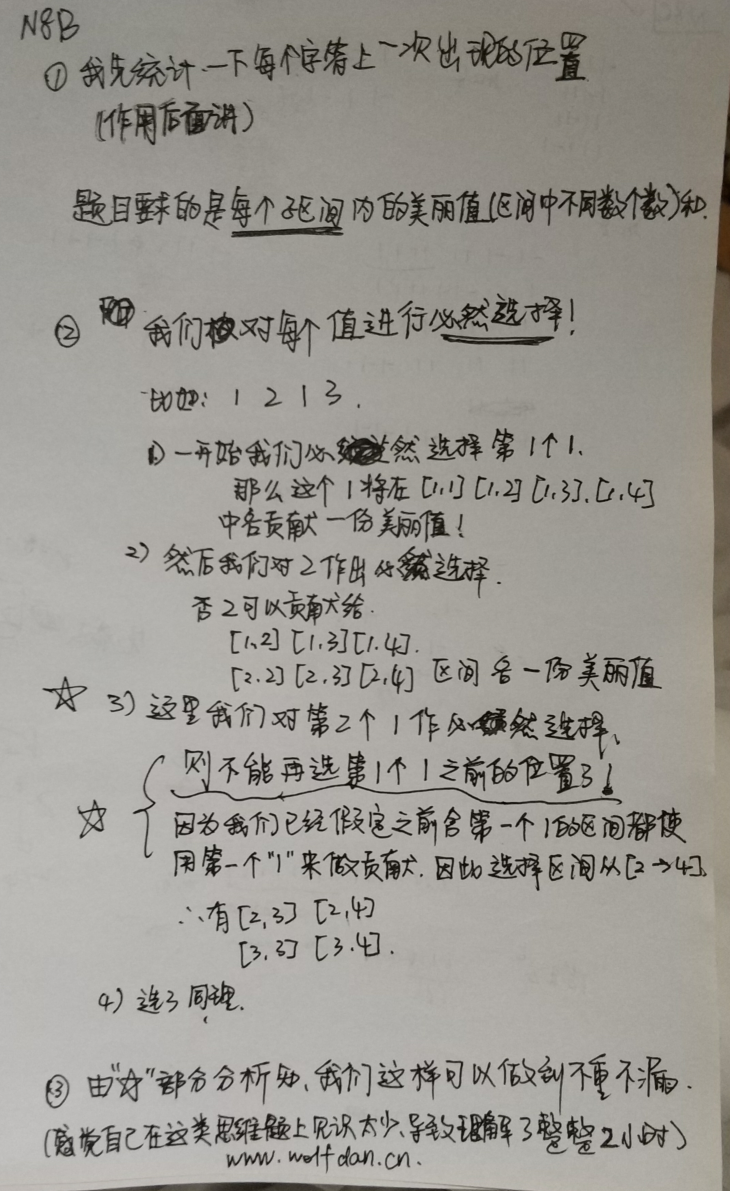 N8B
① 我先统计一下每个字符上一次出现的位置
(作用后面讲)
题目要求的是每个子区间内的美丽值(区间中不同数个数)和.
② 我们对每个值进行必然选择!
比如: 1 2 1 3.
1) 一开始我们必然选择第1个1.
那么这个1将在[1,1] [1,2] [1,3]. [1,4]
中各贡献一份美丽值!
2) 然后我们对2作出必然选择.
否2可以贡献给.
[1,2] [1,3] [1.4].
[2.2] [2,3] [2,4] 区间各一份美丽值
☆ 3) 这里我们对第2个1作必然选择、
则不能再选第1个1之前的位置了!
☆ 因为我们已经假定之前含第一个1的区间都使
用第一个"1"来做贡献. 因此选择区间从[2→4].
∴有[2,3] [2,4]
[3,3] [3.4].
4) 选3同理.
③ 由"☆"部分分析知、我们这样可以做到不重不漏.
(感觉自己在这类思维题上见识太少、导致理解了整整2小时)
www.wolfdan.cn.